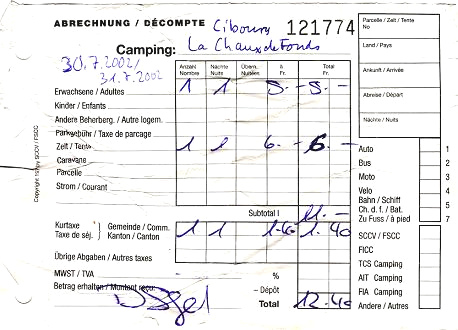 ABRECHNUNG / DÉCOMPTE Cibourg 121774
Camping: La Chaux de Fonds
30.7.2002/
31.7.2002
Anzahl Nombre
Nächte Nuits
Übern. Nuitées
à Fr.
Total Fr.
Erwachsene / Adultes 1 1 5.- 5.-
Kinder / Enfants
Andere Beherberg. / Autre logem.
Parkgebühr / Taxe de parcage
Zelt / Tente 1 1 6.- 6.-
Caravane
Parcelle
Strom / Courant
Subtotal I 11.-
Kurtaxe Taxe de séj. Gemeinde / Comm. Kanton / Canton 1 1 1.40 1.40
Übrige Abgaben / Autres taxes
MWST / TVA %
Betrag erhalten / Montant reçu: – Dépôt
Total 12.40
Parcelle / Zelt / Tente
No
Land / Pays
Ankunft / Arrivée
Abreise / Départ
Nächte / Nuits
Auto 1
Bus 2
Moto 3
Velo 4
Bahn / Schiff
Ch. d. f. / Bat. 5
Zu Fuss / à pied 7
SCCV / FSCC
FICC
TCS Camping
AIT Camping
FIA Camping
Andere / Autres